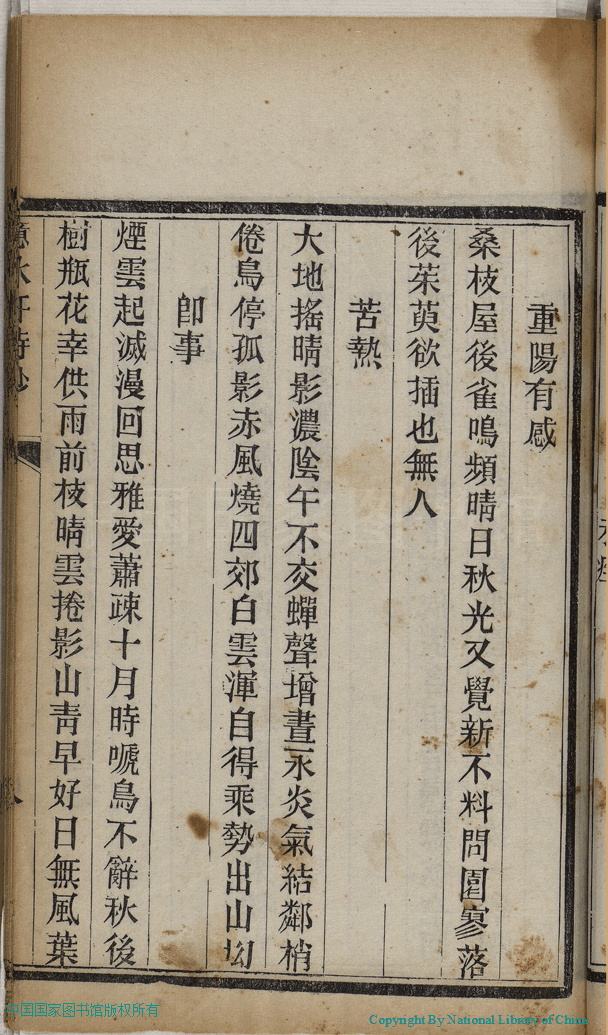 重陽有感
桑枝屋後雀鳴頻晴日秋光又覺新不料問園寥落
後茱萸欲插也無人
苦熱
大地搖晴影濃陰午不交蟬聲增晝永炎氣結鄰梢
倦鳥停孤影赤風燒四郊白雲渾自得乘勢出山坳
卽事
煙雲起滅漫回思雅愛蕭疎十月時嗁鳥不辭秋後
樹瓶花幸供雨前枝晴雲捲影山靑早好日無風葉
中国国家图书馆版权所有
Copyright By National Library of China